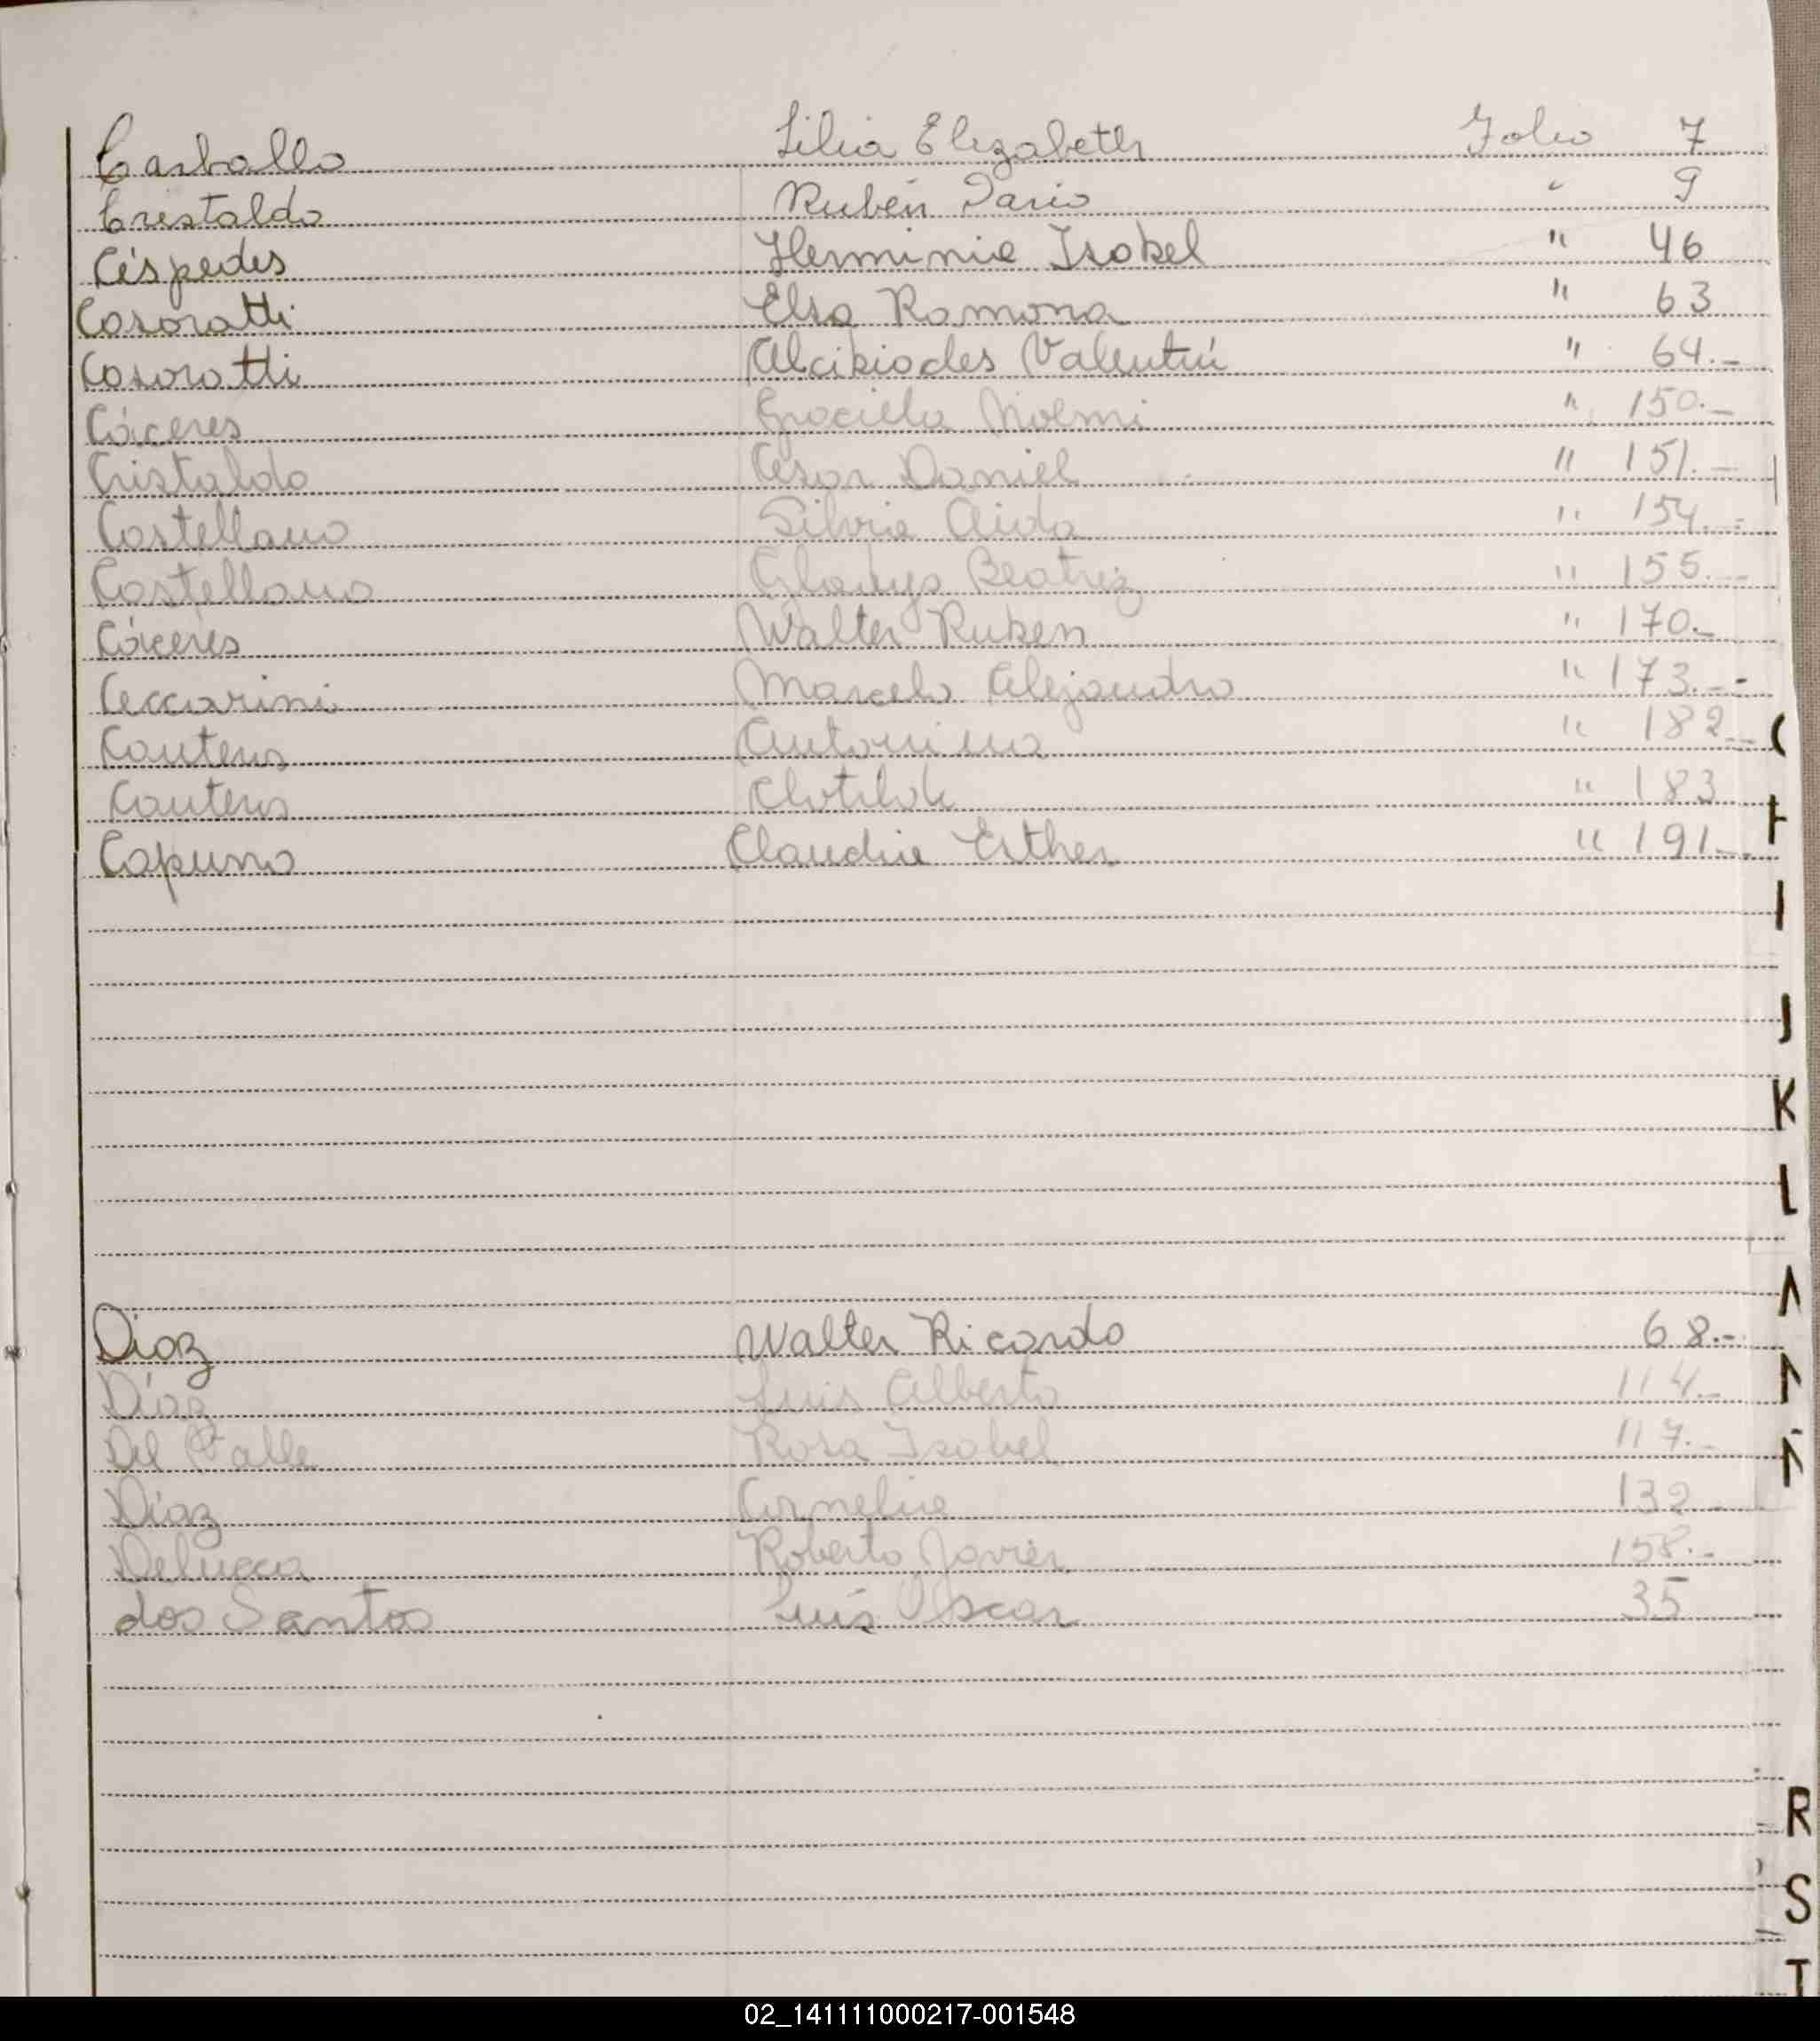 Carballo Lilia Elizabeth Folio 7
Cristaldo Rubén Dario " 9
Céspedes Herminia Isabel " 46
Casoratti Elsa Ramona " 63
Casoratti Alcibiades Valentín " 64.-
Cáceres Graciela Noemi " 150.-
Cristaldo Cesar Daniel " 151.-
Castellano Silvia Aida " 154.-
Castellano Gladys Beatriz " 155.-
Cáceres Walter Ruben " 170.-
Ceccarini Marcelo Alejandro " 173.-
Canteros Antonina " 182.-
Canteros Clotilde " 183
Capurro Claudia Esther " 191.-
Díaz Walter Ricardo 68.-
Díaz Luis Alberto 114.-
Del Valle Rosa Isabel 117.-
Díaz Cornelia 132.-
Delucca Roberto Javier 158.-
dos Santos Luis Oscar 35
J
K
R
S
T
02_141111000217-001548